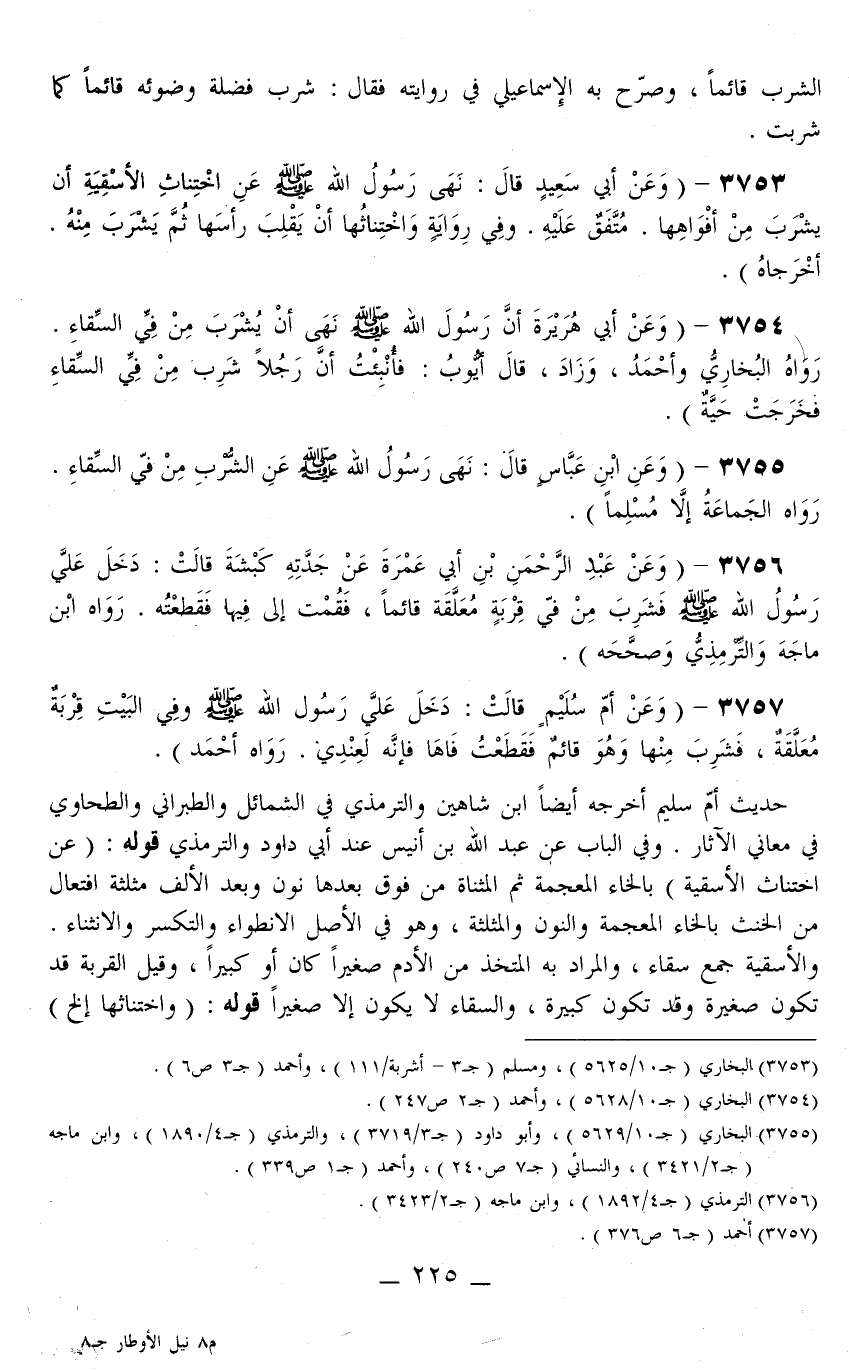 الشرب قائماً ، وصرّح به الإسماعيلي في روايته فقال : شرب فضلة وضوئه قائماً كما
شربت .
٣٧٥٣ – ( وَعَنْ أبي سَعِيدٍ قالَ : نَهَى رَسُولُ الله ﷺ عَنِ اخْتِناثِ الأسْقِيَةِ أن
يشْرَبَ مِنْ أفْوَاهِها . مُتَّفَقٌ عَلَيْهِ . وفي رِوَايَةٍ وَاخْتِناثُها أنْ يَقْلِبَ رأسَها ثُمَّ يَشْرَبَ مِنْهُ .
أخْرَجاهُ ) .
٣٧٥٤ – ( وَعَنْ أبي هُرَيْرَةَ أنَّ رَسُولَ الله ﷺ نَهَى أنْ يُشْرَبَ مِنْ فِيِّ السِّقاءِ .
رَوَاهُ البُخارِيُّ وأحْمَدُ ، وَزَادَ ، قالَ أيُّوبُ : فأُنْبِئْتُ أنَّ رَجُلاً شَرِب مِنْ فِيِّ السِّقاءِ
فَخَرَجَتْ حَيَّةٌ ) .
٣٧٥٥ – ( وَعَنِ ابْنِ عَبَّاسٍ قالَ : نَهَى رَسُولُ الله ﷺ عَنِ الشُّرْبِ مِنْ فيّ السِّقاءِ .
رَوَاه الجَماعَةُ إلَّا مُسْلِماً ) .
٣٧٥٦ – ( وَعَنْ عَبْدِ الرَّحْمَنِ بْنِ أبي عَمْرَةَ عَنْ جَدَّتِهِ كَبْشَةَ قالَتْ : دَخَلَ عَلَيَّ
رَسُولُ الله ﷺ فَشَرِبَ مِنْ فيّ قِرْبَةٍ مُعَلَّقَة قائماً ، فَقُمْت إلى فِيها فَقَطعْتُه . رَوَاه ابْن
ماجَهَ وَالتِّرْمِذِيُّ وَصحَّحَه ) .
٣٧٥٧ – ( وَعَنْ أمّ سُلَيْمٍ قالَتْ : دَخَلَ عَلَيَّ رَسُول الله ﷺ وفي البَيْتِ قِرْبَةٌ
مُعَلَّقَةٌ ، فَشَرِبَ مِنْها وَهُوَ قائمٌ فَقَطَعْتُ فَاهَا فإنَّه لَعِنْدِي . رَوَاه أحْمَد ) .
حديث أمّ سليم أخرجه أيضاً ابن شاهين والترمذي في الشمائل والطبراني والطحاوي
في معاني الآثار . وفي الباب عن عبد الله بن أنيس عند أبي داود والترمذي قوله : ( عن
اختناث الأسقية ) بالخاء المعجمة ثم المثناة من فوق بعدها نون وبعد الألف مثلثة افتعال
من الخنث بالخاء المعجمة والنون والمثلثة ، وهو في الأصل الانطواء والتكسر والانثناء .
والأسقية جمع سقاء ، والمراد به المتخذ من الأدم صغيراً كان أو كبيراً ، وقيل القربة قد
تكون صغيرة وقد تكون كبيرة ، والسقاء لا يكون إلا صغيراً قوله : ( واختناثها إلخ )
(٣٧٥٣) البخاري ( جـ١٠/٥٦٢٥ ) ، ومسلم ( جـ٣ – أشربة/١١١ ) ، وأحمد ( جـ٣ ص٦ ) .
(٣٧٥٤) البخاري ( جـ١٠/٥٦٢٨ ) ، وأحمد ( جـ٢ ص٢٤٧ ) .
(٣٧٥٥) البخاري ( جـ١٠/٥٦٢٩ ) ، وأبو داود ( جـ٣/٣٧١٩ ) ، والترمذي ( جـ٤/١٨٩٠ ) ، وابن ماجه
( جـ٢/٣٤٢١ ) ، والنسائي ( جـ٧ ص٢٤٠ ) ، وأحمد ( جـ١ ص٣٣٩ ) .
(٣٧٥٦) الترمذي ( جـ٤/١٨٩٢ ) ، وابن ماجه ( جـ٢/٣٤٢٣ ) .
(٣٧٥٧) أحمد ( جـ٦ ص٣٧٦ ) .
— ٢٢٥ —
م٨ نيل الأوطار جـ٨